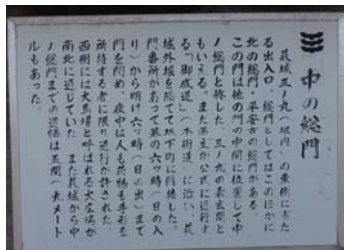 中の総門
萩城三ノ丸(堀内)の東側にあた
る出入口。総門としてはこのほかに
北の総門・平安古の総門がある。
この門は他の門の中間に位置して中
ノ総門と称した。三ノ丸の表玄関と
もいえる。また藩主が公式に通行す
る「御成道」(本街道)に沿い、萩
城外堀を隔てて城下町に接した。
門番所があって暮の六ッ時(日の入
り)から明け六ッ時(日の出)まで
門を閉め、夜中は人も荷物も手形を
所持する者に限り通行が許された。
西側には大馬場と呼ばれる大広場が
南北に通じていた。また萩城から中
ノ総門までの道幅は五間(九メート
ルもあった。